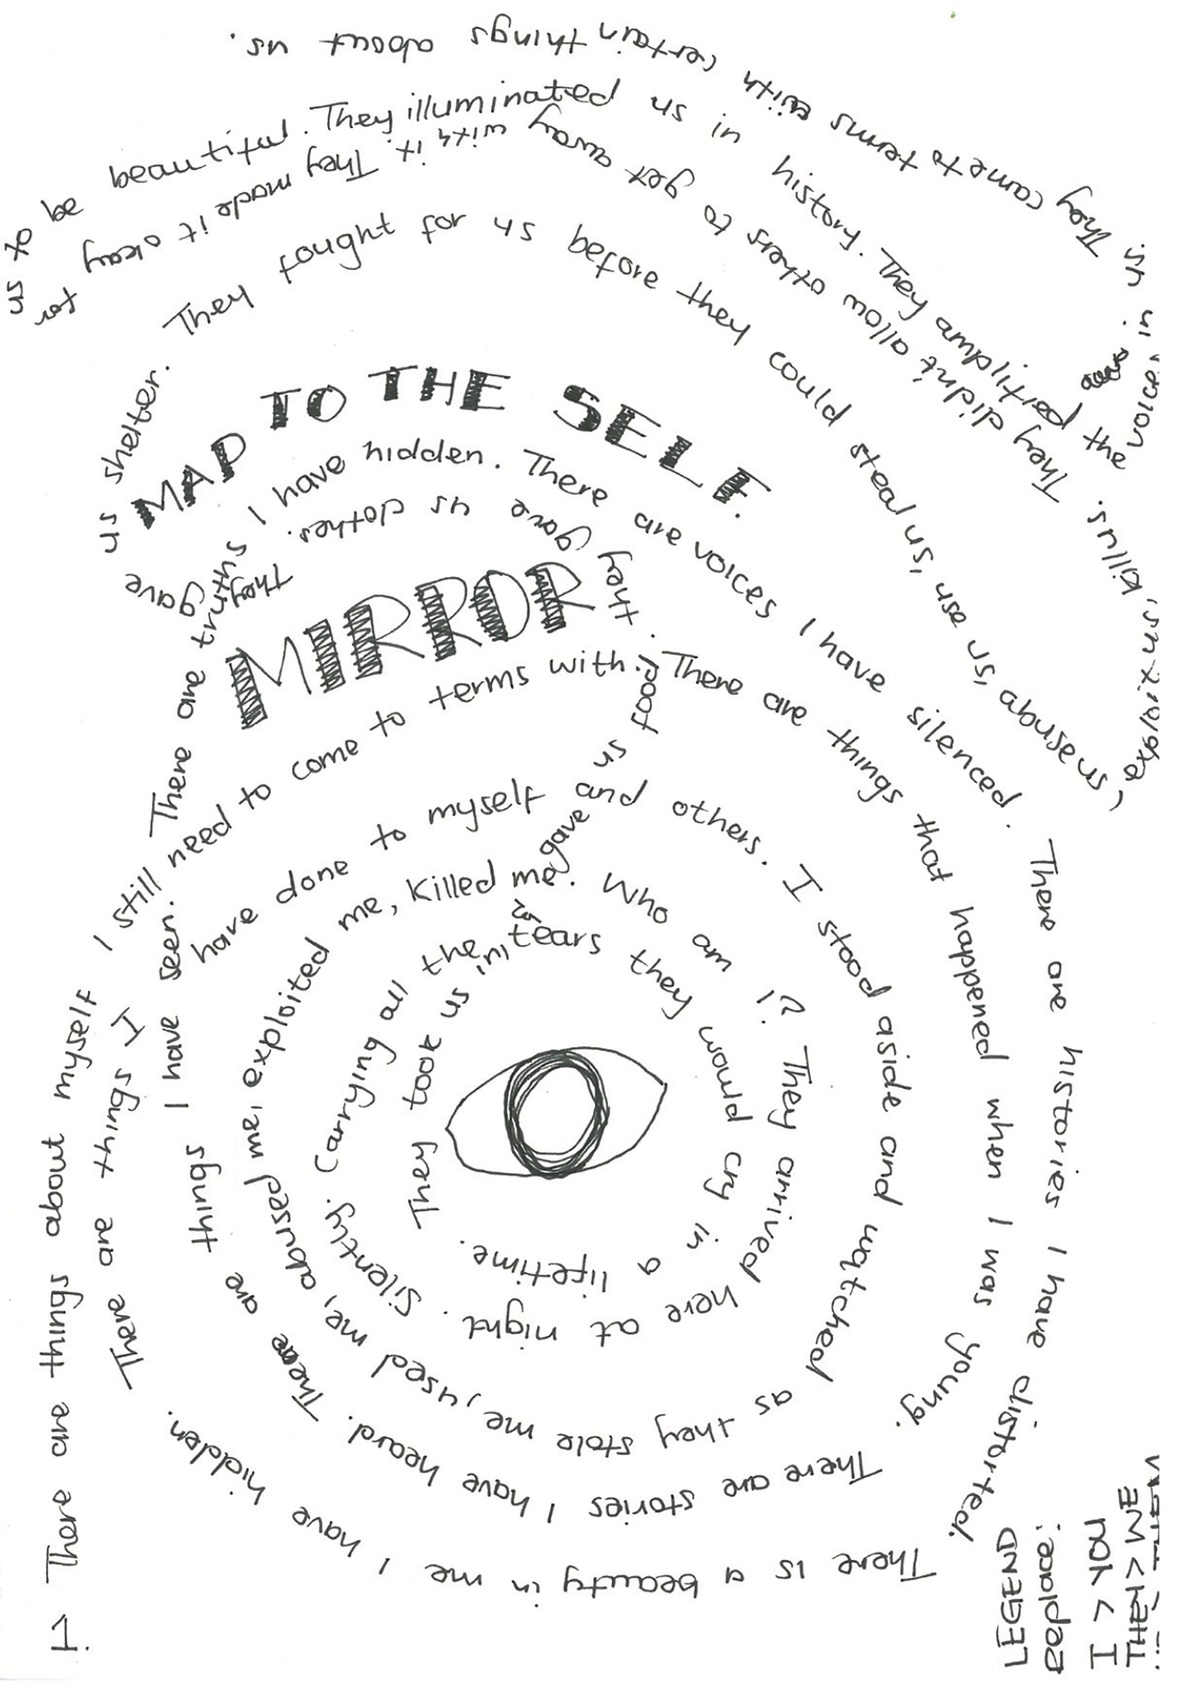 MAP TO THE SELF.
MIRROR
1. There are things about myself I still need to come to terms with. There are things that happened when I was young. There are stories I have heard. There are things I have seen. There are truths I have hidden. There are voices I have silenced. There are histories I have distorted. There is a beauty in me I have hidden. There are things I have done to myself and others. I stood aside and watched as they stole me, used me, abused me, exploited me, killed me. Who am I? They arrived here at night. Silently. Carrying all the tears they would cry in a lifetime.
They took us in, gave us food. They gave us clothes. They gave us shelter. They fought for us before they could steal us, use us, abuse us, exploit us, kill us. They didn't allow others to get away with it. They made it okay for us to be beautiful. They illuminated us in history. They amplified the voice, in us. They came to terms with certain things about us.
LEGEND
REPLACE: